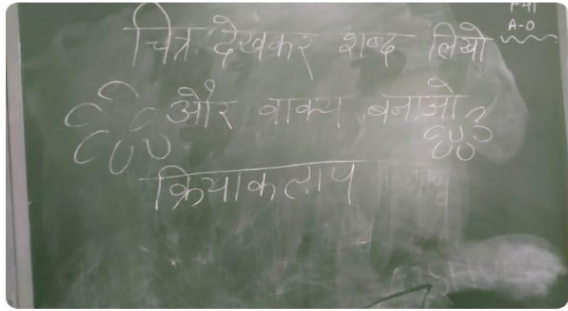 चित्र देखकर शब्द लिखो
A-0
और वाक्य बनाओ
क्रियाकलाप